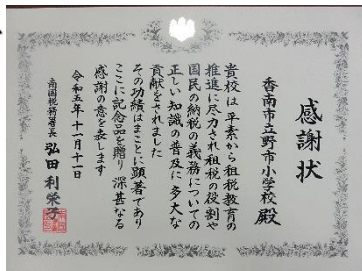 感謝状
香南市立野市小学校 殿
貴校は平素から租税教育の
推進に尽力され租税の役割や
国民の納税の義務についての
正しい知識の普及に多大な
貢献をされました
その功績はまことに顕著であり
ここに記念品を贈り深甚なる
感謝の意を表します
令和五年十一月十一日
南国税務署長 弘田利栄子